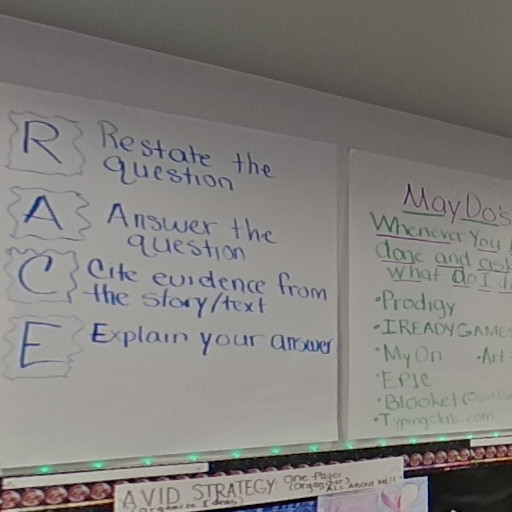 R Restate the
question
A Answer the
question
C Cite evidence from
the story/text
E Explain your answer
May Do's
Whenever You
done and ask
what do I d
•Prodigy
•IREADY GAMES
•MyOn •Art
•EPIC
•Blooket
•Typingclub.com
AVID STRATEGY: One-Pager
(Organizer) ALL About ME!!
(Organize Ideas)